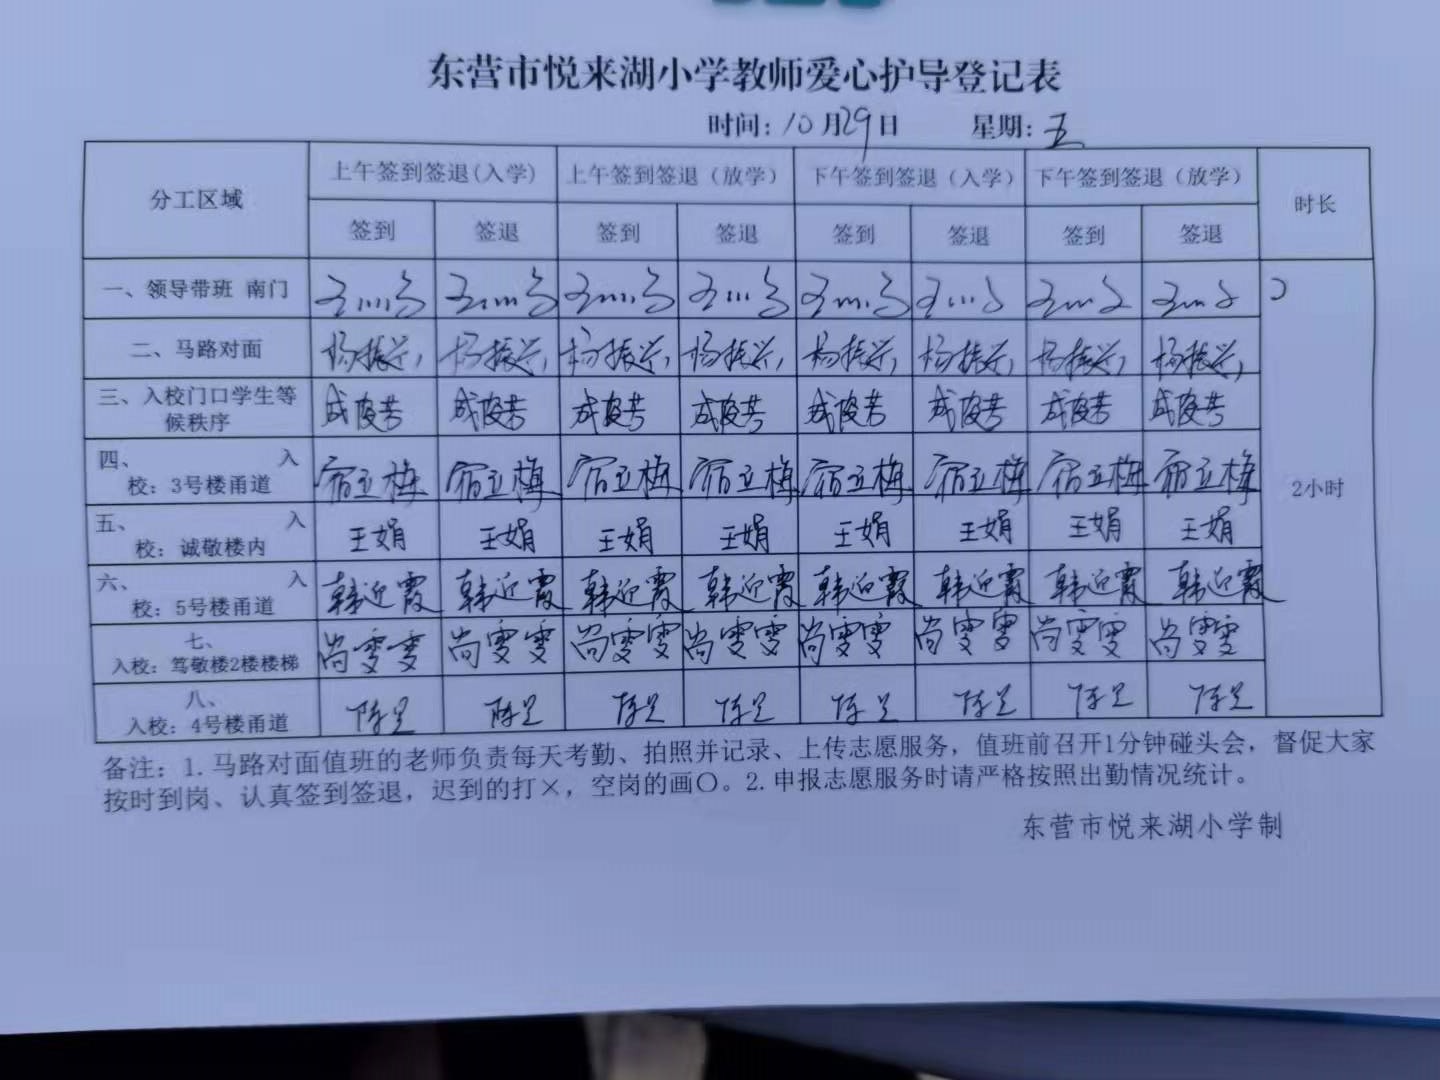 东营市悦来湖小学教师爱心护导登记表
时间：10月29日 星期：五
分工区域 上午签到签退(入学) 上午签到签退（放学） 下午签到签退（入学） 下午签到签退（放学） 时长
签到 签退 签到 签退 签到 签退 签到 签退
一、领导带班 南门
二、马路对面 杨振兴， 杨振兴， 杨振兴， 杨振兴， 杨振兴， 杨振兴， 杨振兴， 杨振兴，
三、入校门口学生等
候秩序 成俊芳 成俊芳 成俊芳 成俊芳 成俊芳 成俊芳 成俊芳 成俊芳
四、 入
校：3号楼甬道 宿立梅 宿立梅 宿立梅 宿立梅 宿立梅 宿立梅 宿立梅 宿立梅
2小时
五、 入
校：诚敬楼内 王娟 王娟 王娟 王娟 王娟 王娟 王娟 王娟
六、 入
校：5号楼甬道 韩迎霞 韩迎霞 韩迎霞 韩迎霞 韩迎霞 韩迎霞 韩迎霞 韩迎霞
七、
入校：笃敬楼2楼楼梯 尚雯雯 尚雯雯 尚雯雯 尚雯雯 尚雯雯 尚雯雯 尚雯雯 尚雯雯
八、
入校：4号楼甬道
备注：1.马路对面值班的老师负责每天考勤、拍照并记录、上传志愿服务，值班前召开1分钟碰头会，督促大家
按时到岗、认真签到签退，迟到的打×，空岗的画〇。2.申报志愿服务时请严格按照出勤情况统计。
东营市悦来湖小学制